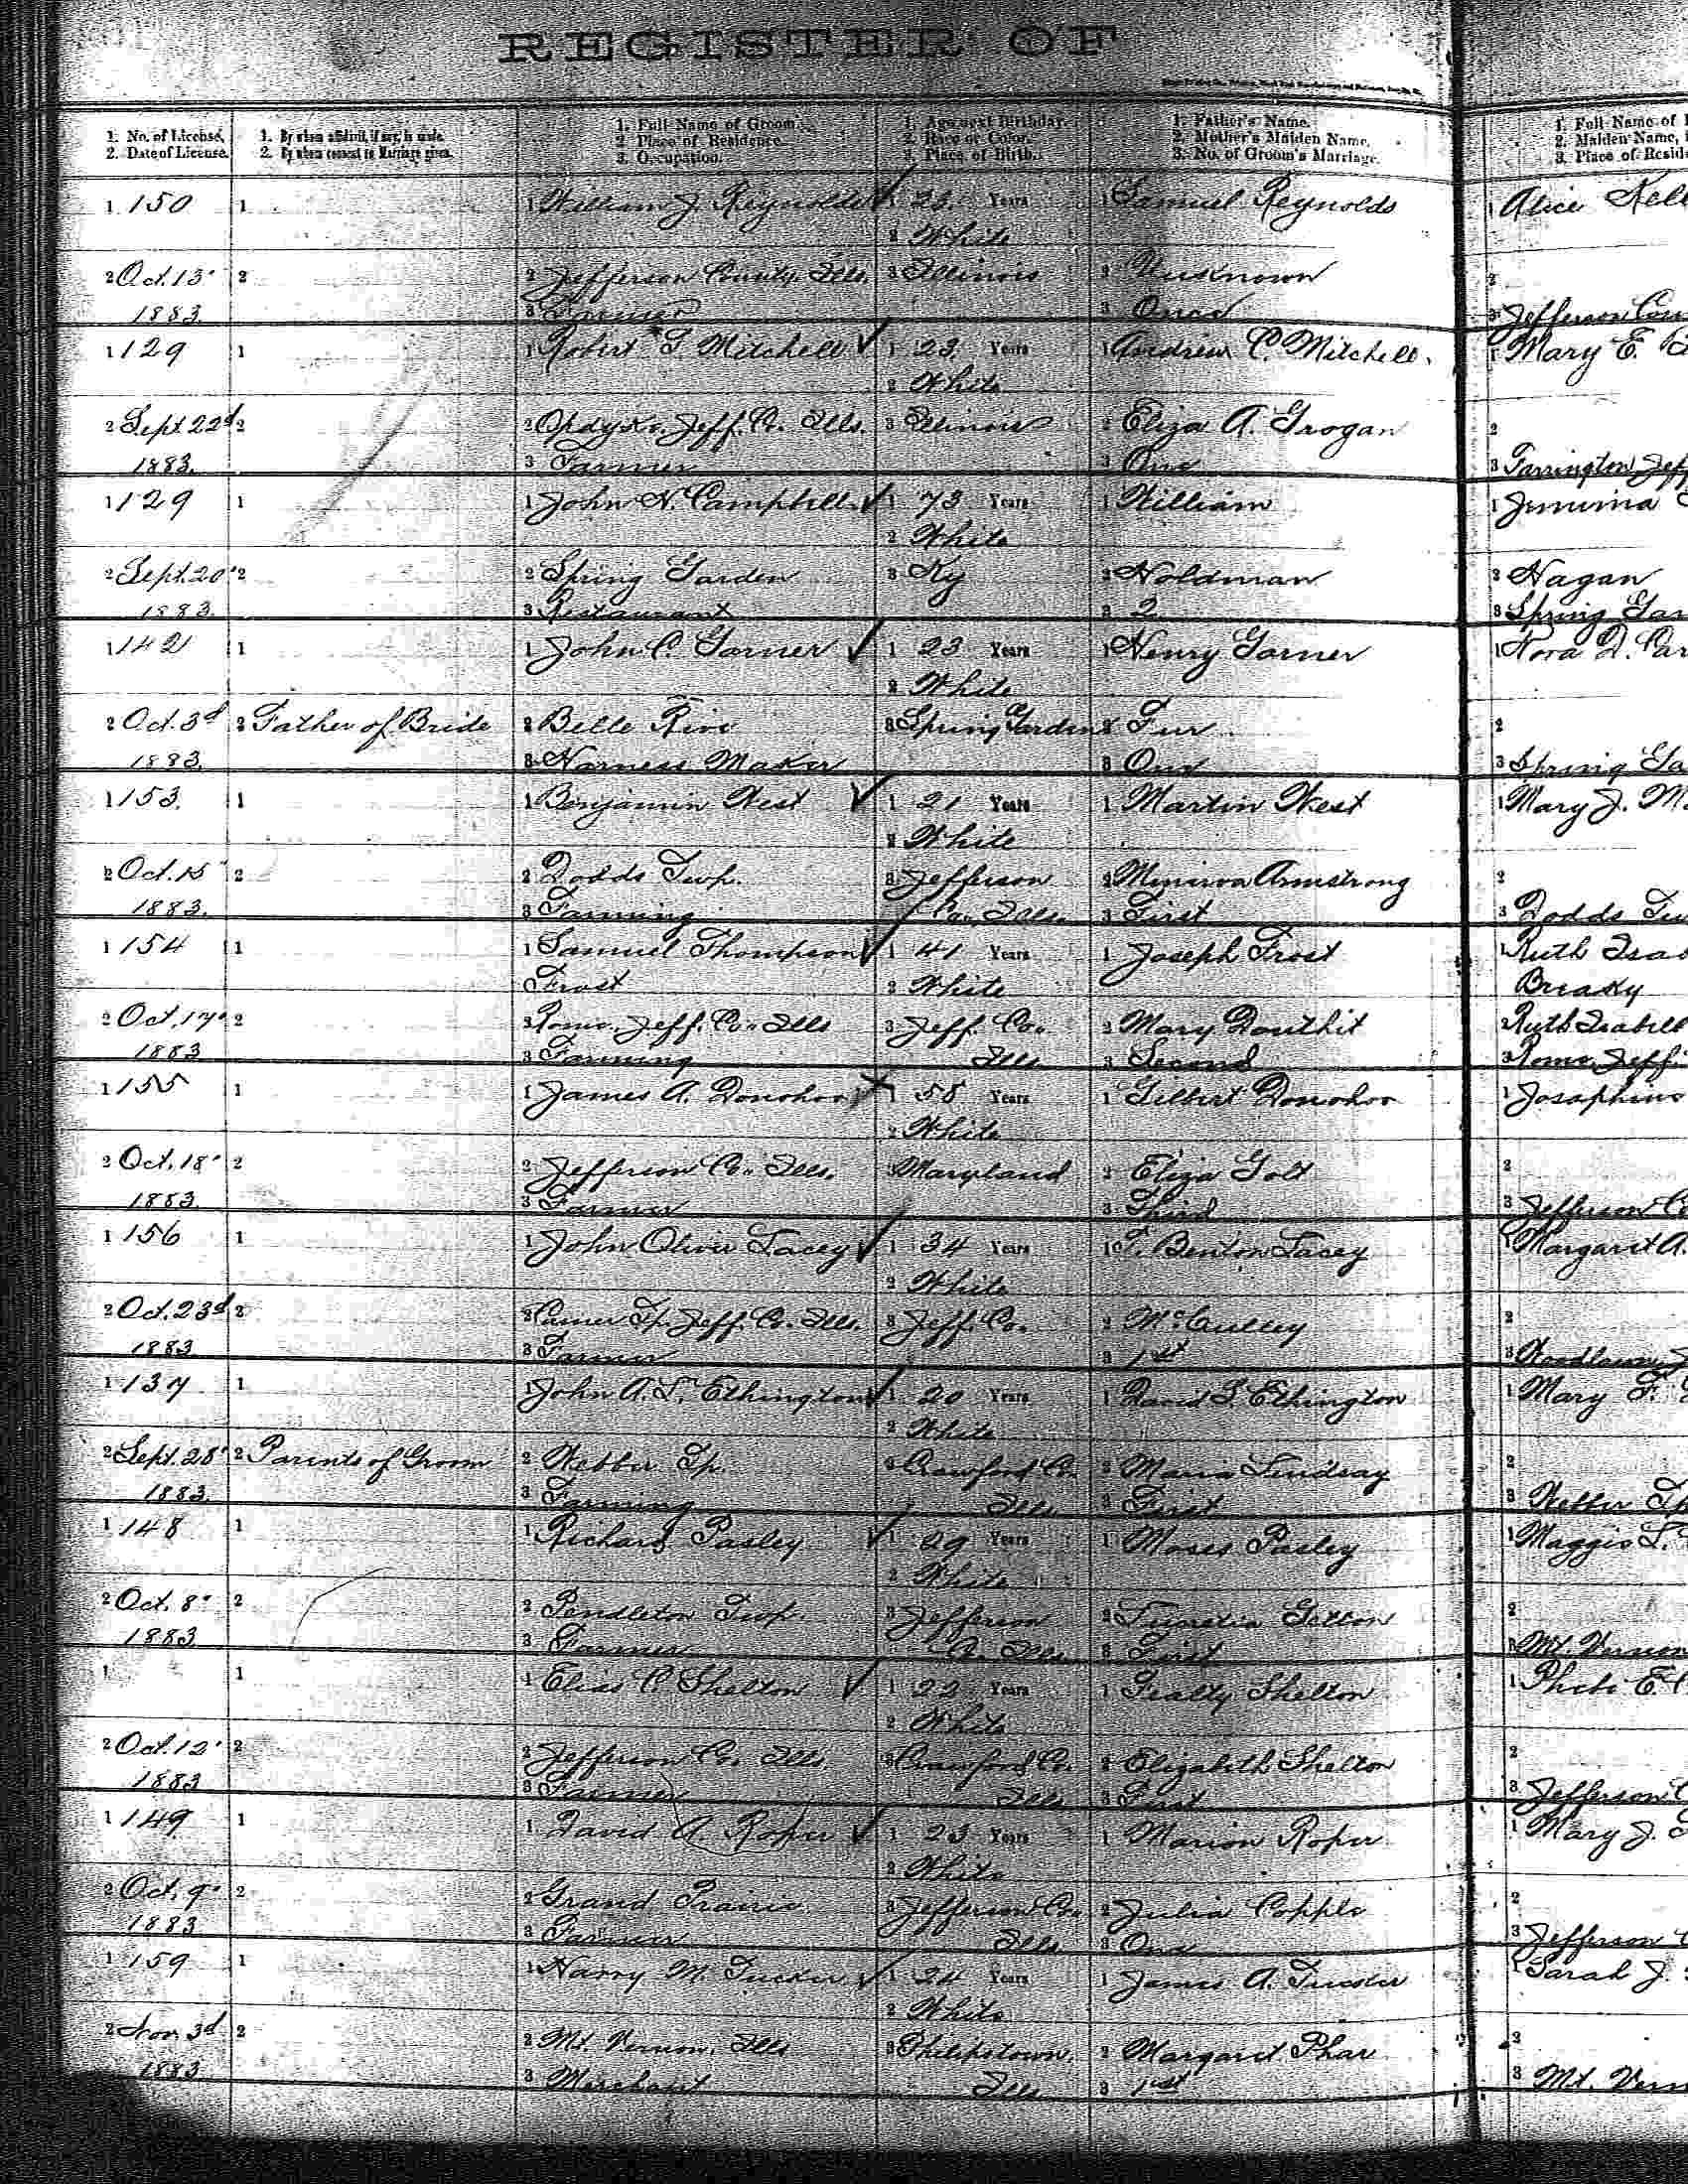 REGISTER OF
1. No. of License. 1. By whom affidavit, if any, is made. 1. Full Name of Groom. 1. Age next Birthday. 1. Father's Name. 1. Full Name of
2. Date of License. 2. By whom consent to Marriage given. 2. Place of Residence. 2. Race or Color. 2. Mother's Maiden Name. 2. Maiden Name,
3. Occupation. 3. Place of Birth. 3. No. of Groom's Marriage. 3. Place of Resid
1 150 1 1 William J. Reynolds 1 23 Years 1 Samuel Reynolds 1 Alice Kell
2 White
2 Oct. 13" 2 2 Jefferson County Ills. 3 Illinois 2 Unknown 2
1883. 3 Farmer 3 Once 3 Jefferson Cou
1 129 1 1 Robert T Mitchell 1 23 Years 1 Andrew C. Mitchell. 1 Mary E.
2 White
2 Sept. 22d 2 2 Opdyke, Jeff. Co. Ills. 3 Illinois 2 Eliza A. Grogan 2
1883. 3 Farmer 3 One 3 Farrington Jeff
1 129 1 1 John N. Campbell 1 73 Years 1 William 1 Jemima
2 White
2 Sept. 20" 2 2 Spring Garden 3 Ky 2 Holdman 2 Hagan
1883. 3 Restaurant 3 2 3 Spring Gar
1 142 1 1 John C. Garner 1 23 Years 1 Henry Garner 1 Nora D. Car
2 White
2 Oct. 3d 2 Father of Bride 2 Belle Rive 3 Spring Garden 2 Fur 2
1883. 3 Harness Maker 3 One 3 Spring Ga
1 153. 1 1 Benjamin West 1 21 Years 1 Martin West 1 Mary J. M
2 White
2 Oct. 15" 2 2 Dodds Twp. 3 Jefferson 2 Minerva Armstrong 2
1883. 3 Farming Co. Ills. 3 First 3 Dodds Tw
1 154 1 1 Samuel Thompson 1 41 Years 1 Joseph Frost 1 Ruth Isab
Frost 2 White Breaky
2 Oct. 17" 2 2 Rome, Jeff. Co. Ills 3 Jeff. Co. 2 Mary Douthit 2 Ruth Isabell
1883 3 Farming Ills 3 Second 3 Rome, Jeff.
1 155 1 1 James A. Donohoo 1 58 Years 1 Gilbert Donohoo 1 Josephine
2 White
2 Oct. 18" 2 2 Jefferson Co. Ills. 3 Maryland 2 Eliza Golt 2
1883. 3 Farmer 3 Third 3 Jefferson C
1 156 1 1 John Oliver Lacey 1 34 Years 1 T. Benton Lacey 1 Margaret A.
2 White
2 Oct. 23d 2 2 Casner Tp. Jeff. Co. Ills. 3 Jeff. Co. 2 McCulley 2
1883 3 Farmer 3 1st 3 Woodlawn J
1 137 1 1 John A. T. Ethington 1 20 Years 1 David T. Ethington 1 Mary F.
2 White
2 Sept. 28" 2 Parents of Groom 2 Webber Tp. 3 Crawford Co. 2 Maria Lindsay 2
1883. 3 Farming Ills 3 First 3 Webber Tp
1 148 1 1 Richard Pasley 1 29 Years 1 Moses Pasley 1 Maggie L.
2 White
2 Oct. 8" 2 2 Pendleton Twp 3 Jefferson 2 Lucretia 2
1883 3 Farmer Co. Ills 3 First 3 Mt. Vernon
1 1 1 Elias C. Shelton 1 22 Years 1 Fealty Shelton 1 Phebe E.
2 White
2 Oct. 12" 2 2 Jefferson Co. Ills. 3 Crawford Co. 2 Elizabeth Shelton 2
1883 3 Farmer Ills 3 First 3 Jefferson C
1 149 1 1 David A. Roper 1 23 Years 1 Marion Roper 1 Mary J.
2 White
2 Oct. 9" 2 2 Grand Prairie 3 Jefferson Co. 2 Julia Copple 2
1883 3 Farmer Ills 3 One 3 Jefferson C
1 159 1 1 Harry M. 1 24 Years 1 James A. 1 Sarah J.
2 White
2 Nov. 3d 2 2 Mt. Vernon, Ills 3 Philipstown, 2 Margaret Phar 2
1883 3 Merchant Ills 3 1st 3 Mt. Vern